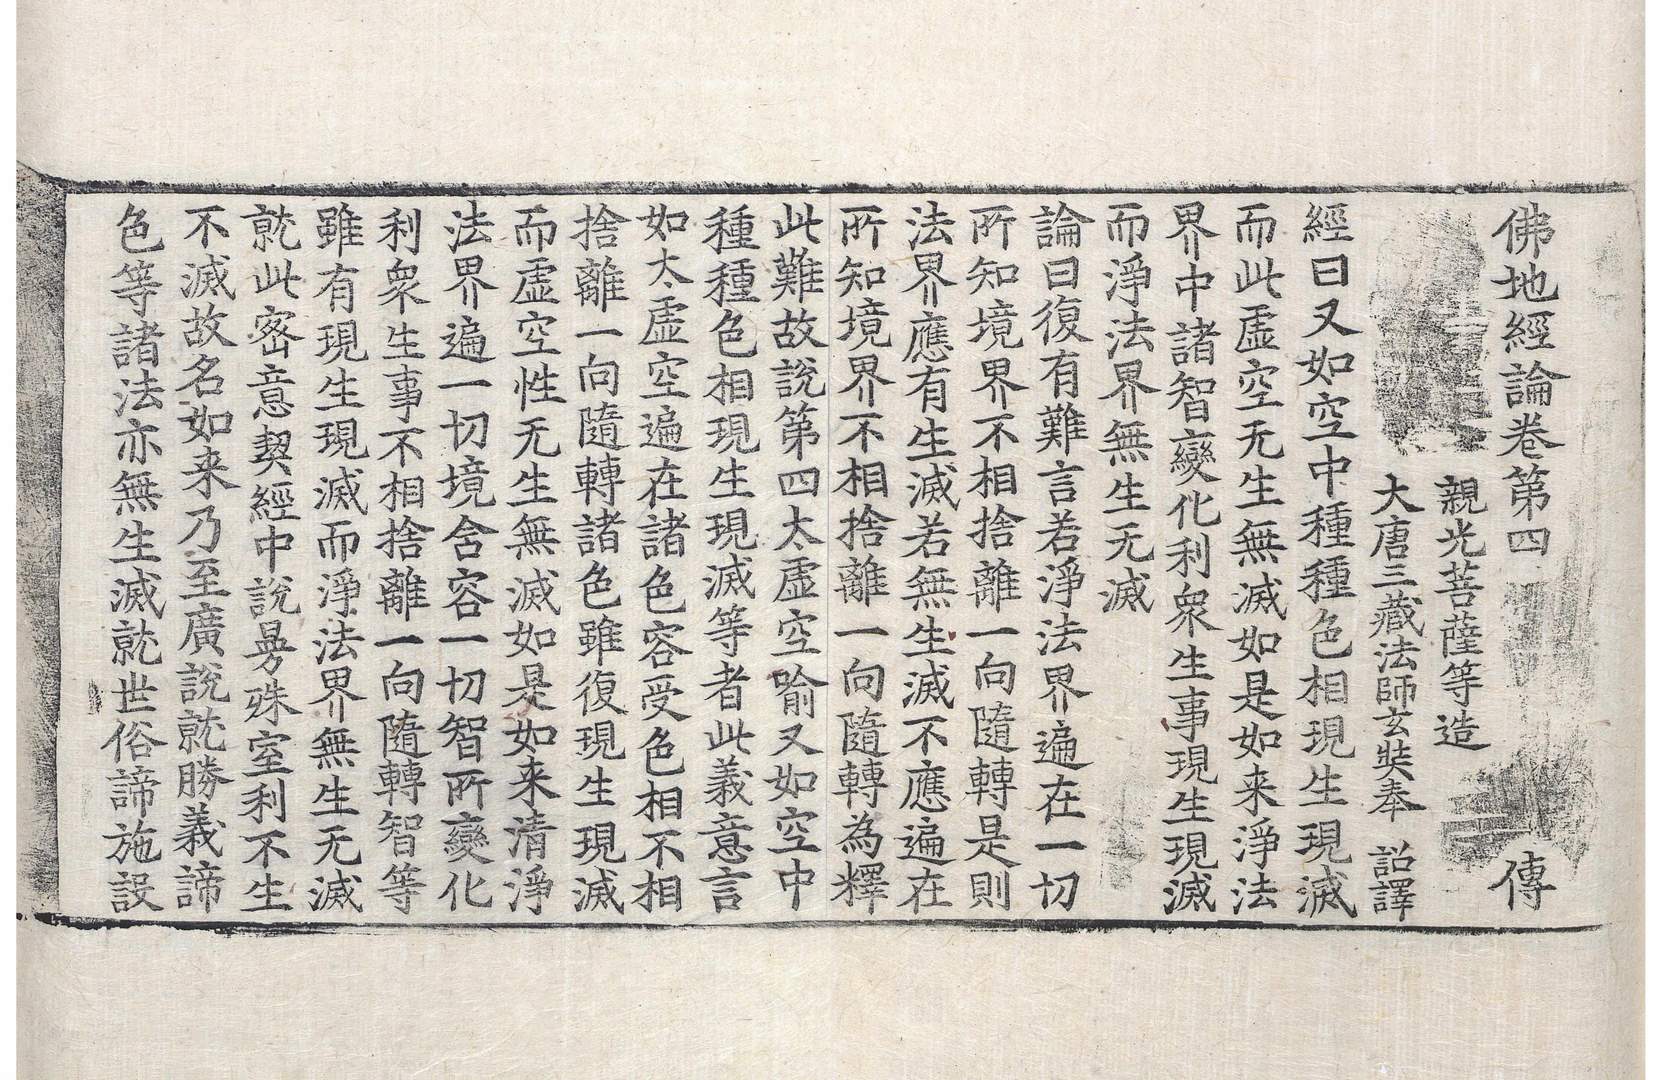 佛地經論卷第四 傳
親光菩薩等造
大唐三藏法師玄奘奉 詔譯
經曰又如空中種種色相現生現滅
而此虛空无生無滅如是如来淨法
界中諸智變化利衆生事現生現滅
而淨法界無生无滅
論曰復有難言若淨法界遍在一切
所知境界不相捨離一向隨轉是則
法界應有生滅若無生滅不應遍在
所知境界不相捨離一向隨轉為釋
此難故說第四太虛空喻又如空中
種種色相現生現滅等者此義意言
如太虛空遍在諸色容受色相不相
捨離一向隨轉諸色雖復現生現滅
而虛空性无生無滅如是如来清淨
法界遍一切境含容一切智所變化
利衆生事不相捨離一向隨轉智等
雖有現生現滅而淨法界無生无滅
就此密意契經中說曼殊室利不生
不滅故名如来乃至廣說就勝義諦
色等諸法亦無生滅就世俗諦施設